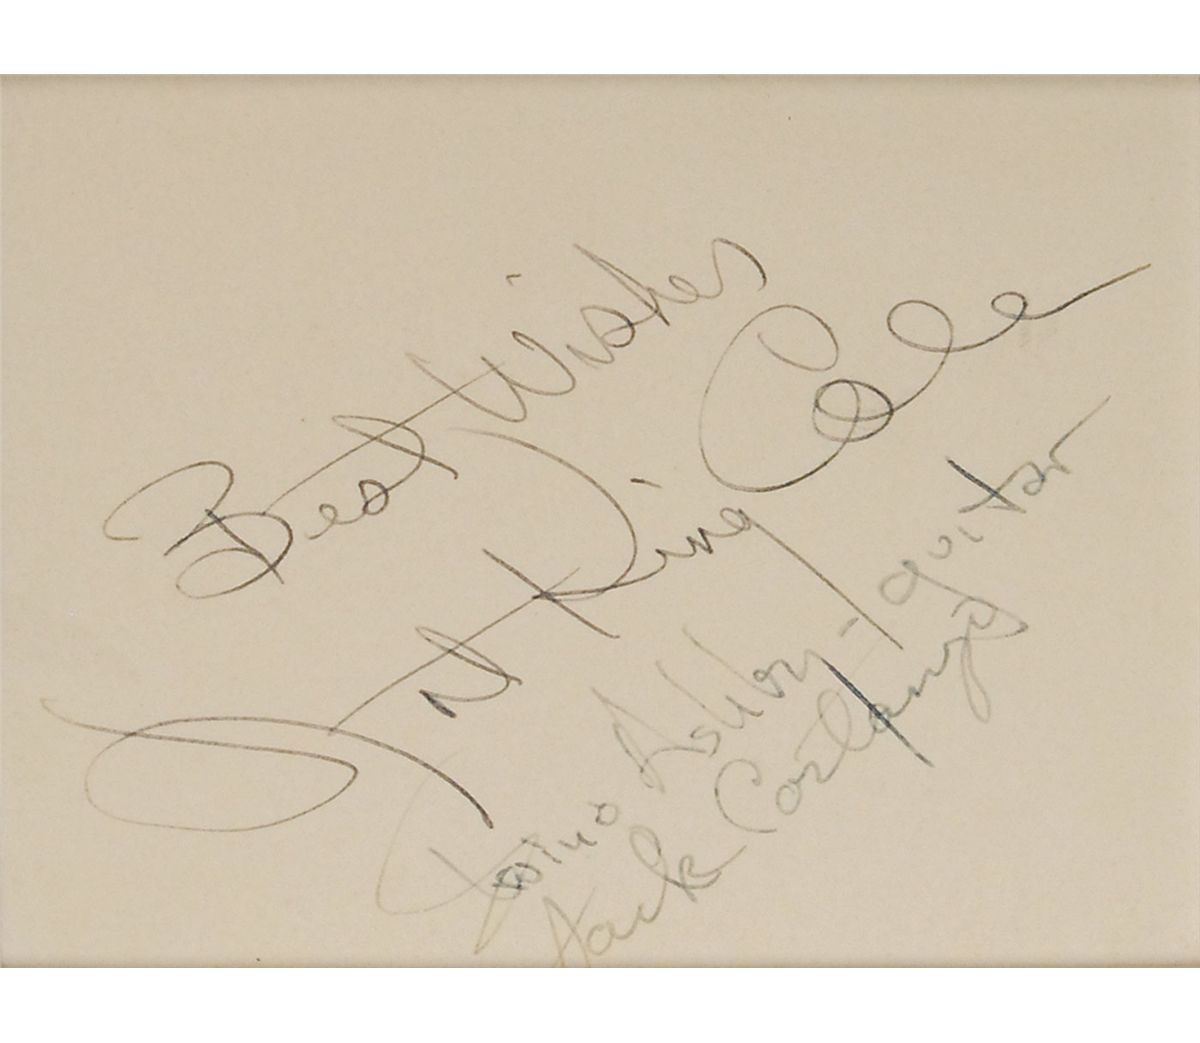 Best Wishes
Nat King Cole
Irving Ashby - guitar
Jack Costanzo